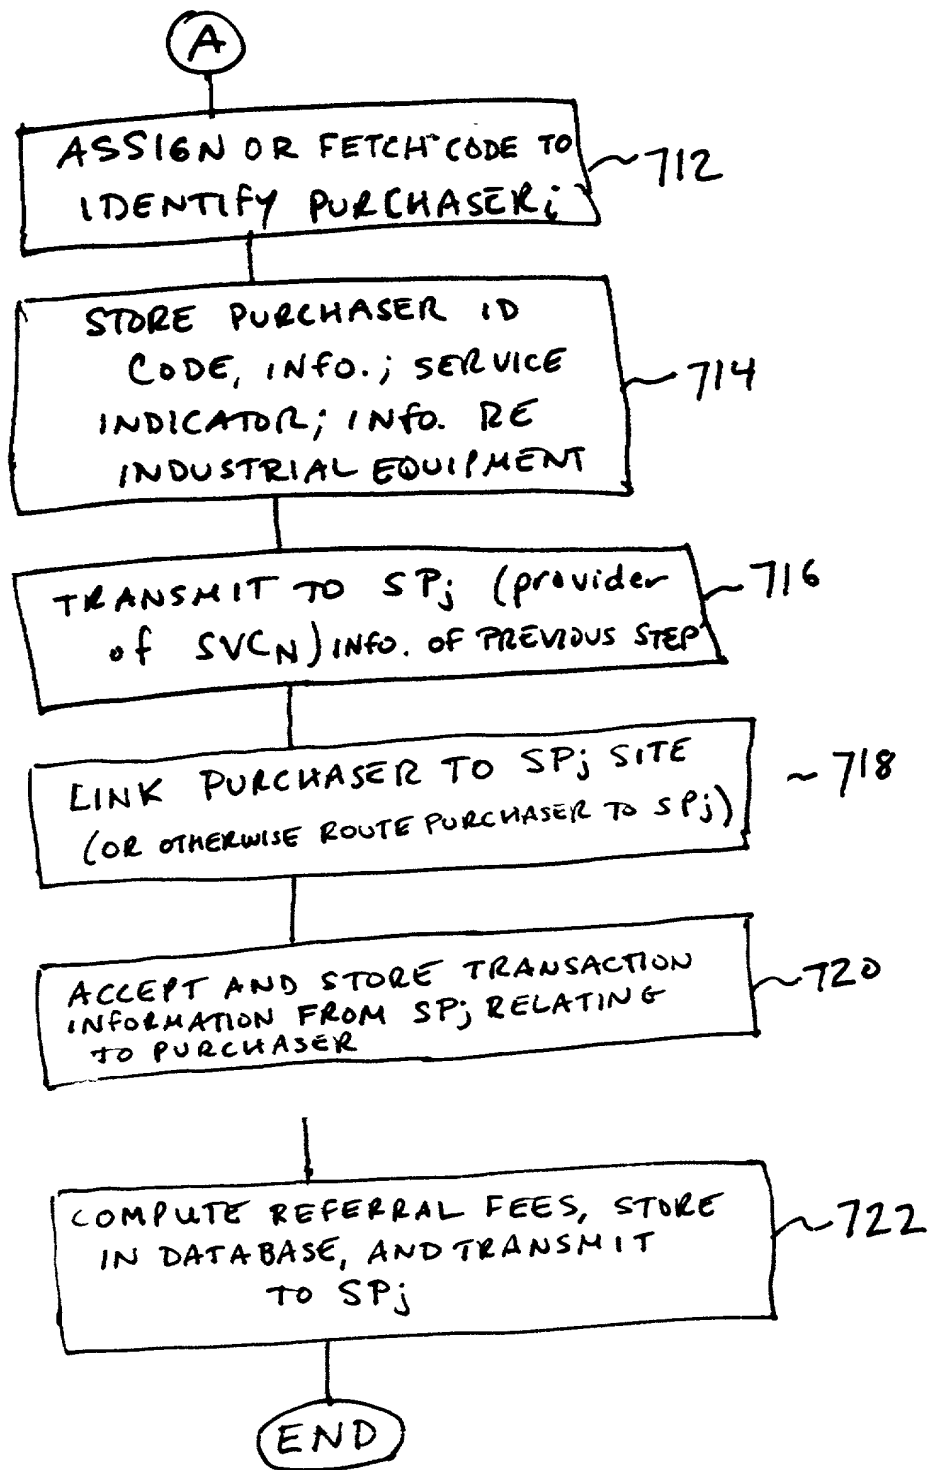 A
ASSIGN OR FETCH CODE TO
IDENTIFY PURCHASERi
712
STORE PURCHASER ID
CODE, INFO.; SERVICE
INDICATOR; INFO. RE
INDUSTRIAL EQUIPMENT
714
TRANSMIT TO SPj (provider
of SVCN) INFO. OF PREVIOUS STEP
716
LINK PURCHASER TO SPj SITE
(OR OTHERWISE ROUTE PURCHASER TO SPj)
718
ACCEPT AND STORE TRANSACTION
INFORMATION FROM SPj RELATING
TO PURCHASER
720
COMPUTE REFERRAL FEES, STORE
IN DATABASE, AND TRANSMIT
TO SPj
722
END